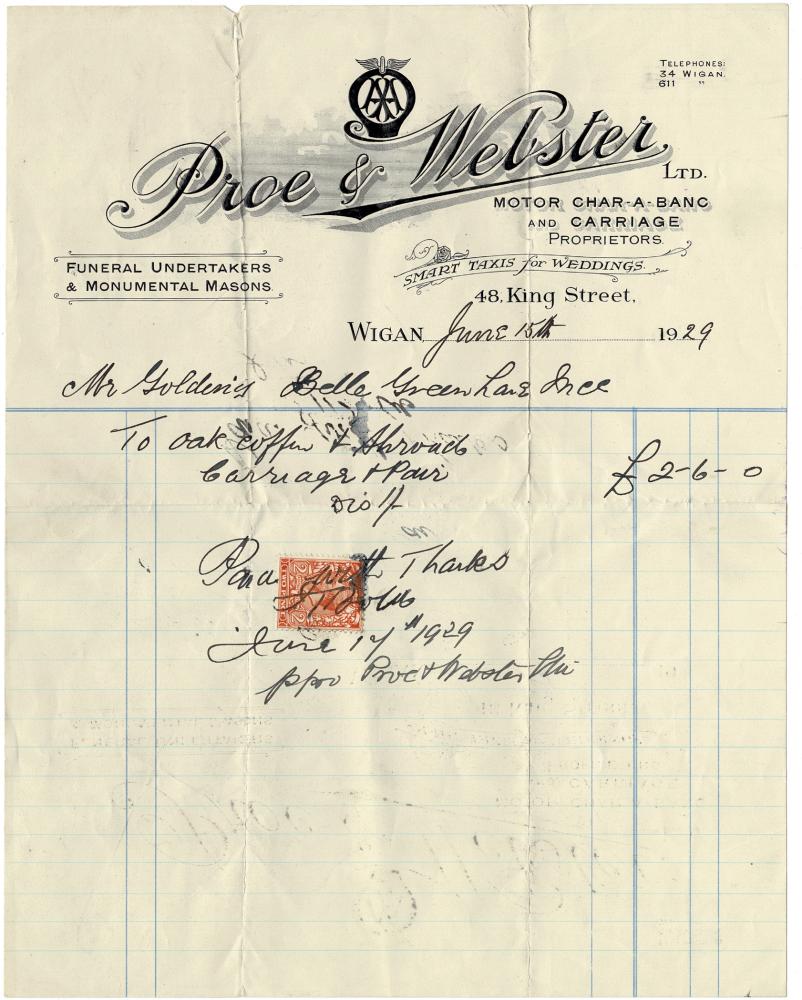 TELEPHONES:
34 WIGAN.
611 "
AA
Proe & Webster, LTD.
MOTOR CHAR-A-BANC
AND CARRIAGE
PROPRIETORS.
FUNERAL UNDERTAKERS
& MONUMENTAL MASONS.
SMART TAXIS for WEDDINGS.
48, King Street,
WIGAN June 15th 1929
Mr Goldings Belle Green Lane Ince
To oak coffin & Shroud
Carriage & Pair
£2-6-0
Paid with Thanks
June 17th 1929
ppro Proe & Webster Ltd